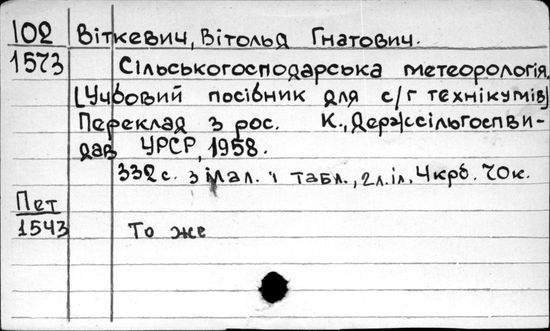 102 Віткевич, Вітольд Гнатович.
1573 Сільськогосподарська метеорологія.
[Учбовий посібник для с/г технікумів]
Переклад з рос. К., Держсільгоспви-
дав УРСР, 1958.
332 с. з мал. і табл., 2 л.іл. 4крб. 70к.
Пет
1543 То же